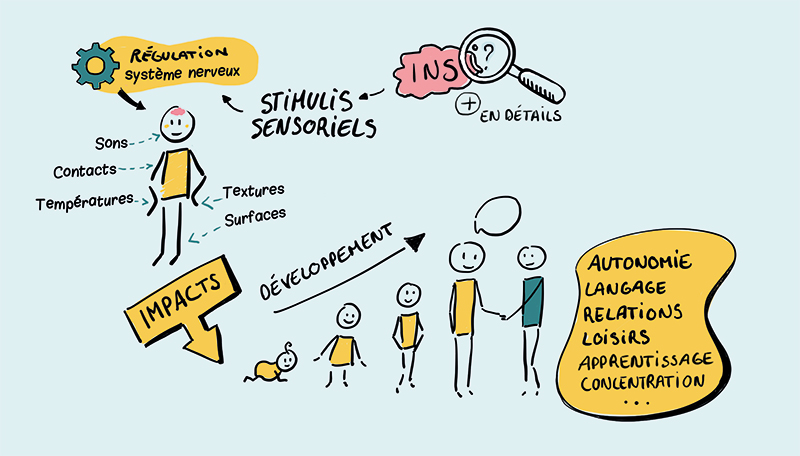 RÉGULATION
système nerveux
STIMULIS
SENSORIELS
INS
?
+
EN DÉTAILS
Sons
Contacts
Températures
Textures
Surfaces
IMPACTS
DÉVELOPPEMENT
AUTONOMIE
LANGAGE
RELATIONS
LOISIRS
APPRENTISSAGE
CONCENTRATION
...